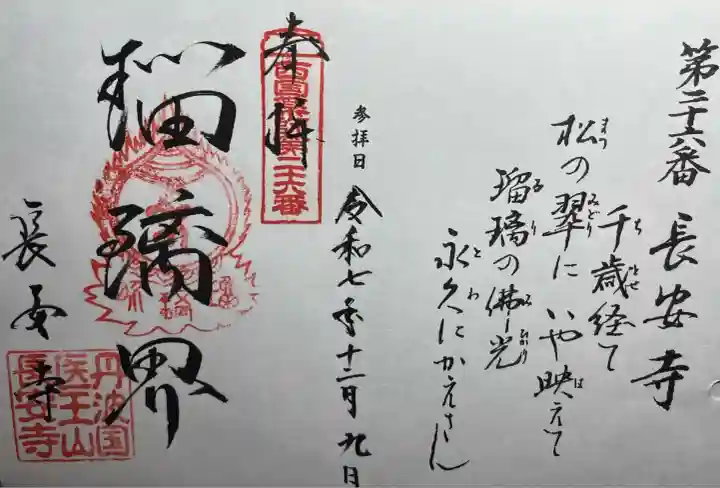 第二十六番 長安寺
千歳経て
ちとせ
松の翠に いや映えて
まつ みどり は
瑠璃の佛光
るり ひかり
永久にかえさん
とわ
参拝日 令和七年十二月九日
奉拝
西国薬師第二十六番
瑠璃界
長安寺
丹波国
医王山
長安寺